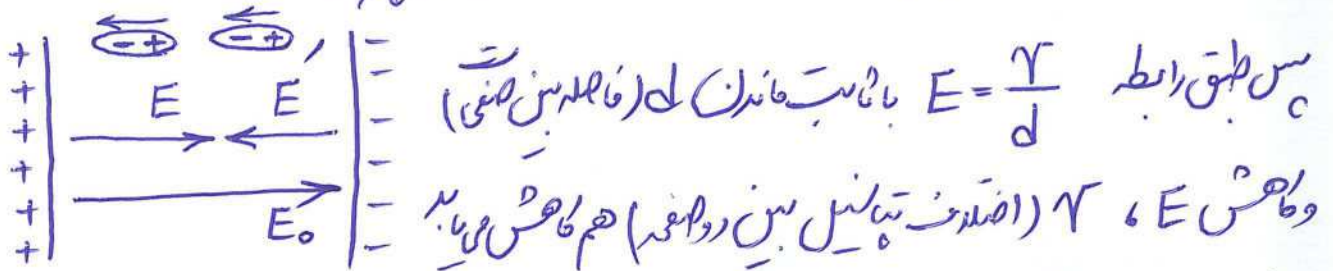 پس طبق رابطه E = V/d با ثابت ماندن d (فاصله بین صفحات)
و کاهش E ، V (اختلاف پتانسیل بین دو صفحه) هم کاهش می یابد
- + - +
+ + + + + +
- - - - - -
E E′
E₀